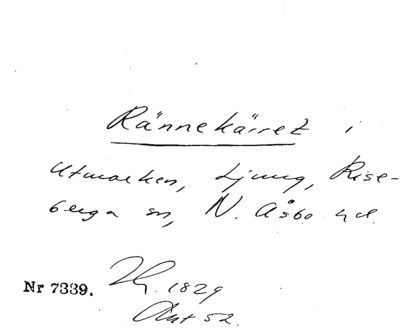 Rännekärret i
Utmarken, Ljung, Rise-
berga sn, N. Åsbo hd.
Nr 7339. 1829
Akt 52.